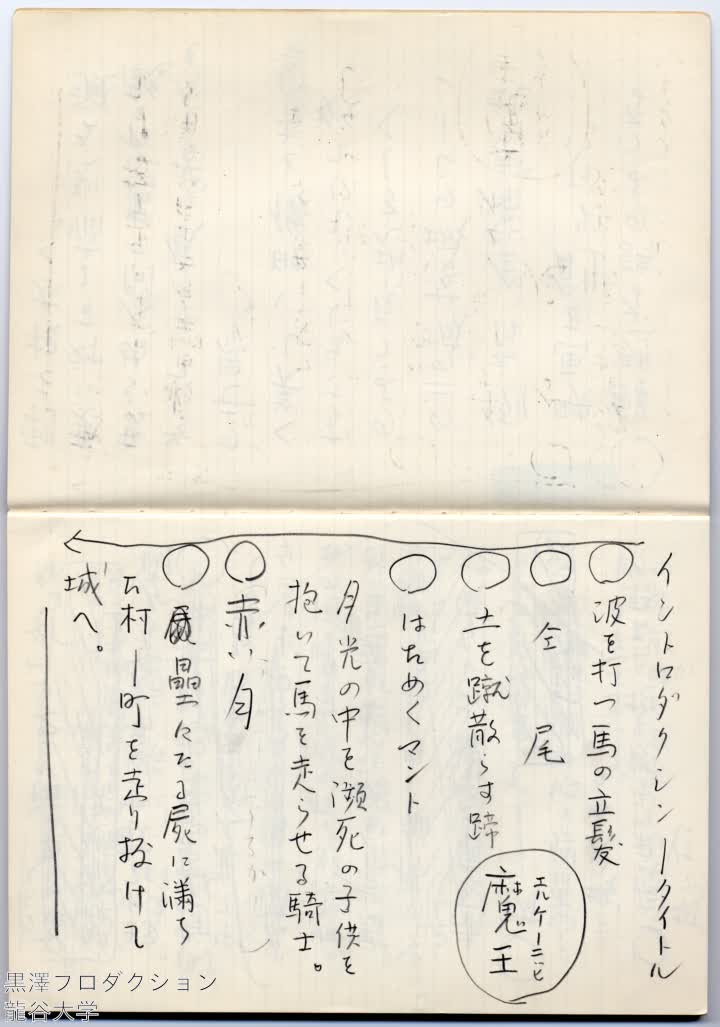 イントロダクション―タイトル
○波を打つ馬の立髪
○仝 尾
○土を蹴散らす蹄
エルケーニヒ
魔王
○はためくマント
月光の中を瀕死の子供を
抱いて馬を走らせる騎士。
○赤い月
○塁々たる屍に満ち
た村―町を走り抜けて
城へ。
黒澤プロダクション
龍谷大学